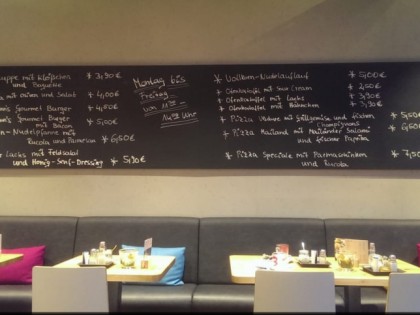 suppe mit Klößchen * 3,90€
und Baguette
mit und Salat * 4,00€
Gourmet Burger * 4,50€
Gourmet Burger * 5,00€
mit Bacon
Nudelpfanne mit * 6,50€
Rucola und Parmesan
Lachs mit Feldsalat
und Honig-Senf-Dressing * 5,90€
Montag bis
Freitag
von
Uhr
* Vollkorn-Nudelauflauf * 5,00€
* Ofenkartoffel mit Sour Cream *
* Ofenkartoffel mit Lachs * 3,90€
* Ofenkartoffel mit Hähnchen * 3,90€
* Pizza mit und frischen
Champignons
* Pizza Mailand mit Mailänder Salami
und frischer Paprika
* Pizza Speciale mit Parmaschinken
und Rucola